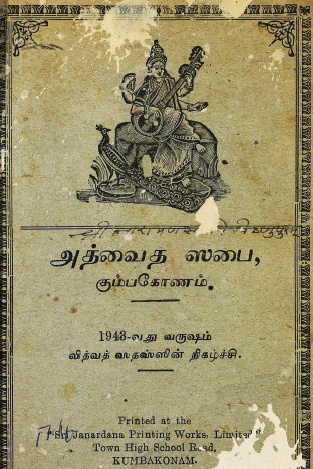 அத்வைத ஸபை,
கும்பகோணம்.
1943-வது வருஷம்
வித்வத் ஸதஸ்ஸின் நிகழ்ச்சி.
Printed at the
Sri Janardana Printing Works, Limited
Town High School Road,
KUMBAKONAM.